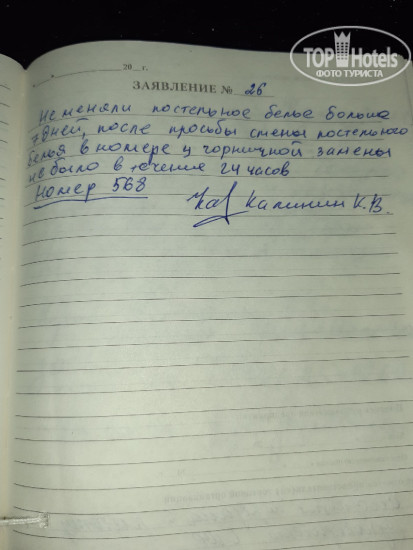 TOPHotels
ФОТО ТУРИСТА
20 г.
ЗАЯВЛЕНИЕ № 26
Не меняли постельное белье больше
7 дней, после просьбы смены постельного
белья в номере у чорничной замены
не было в течение 24 часов
Номер 568
Калинин К.В.